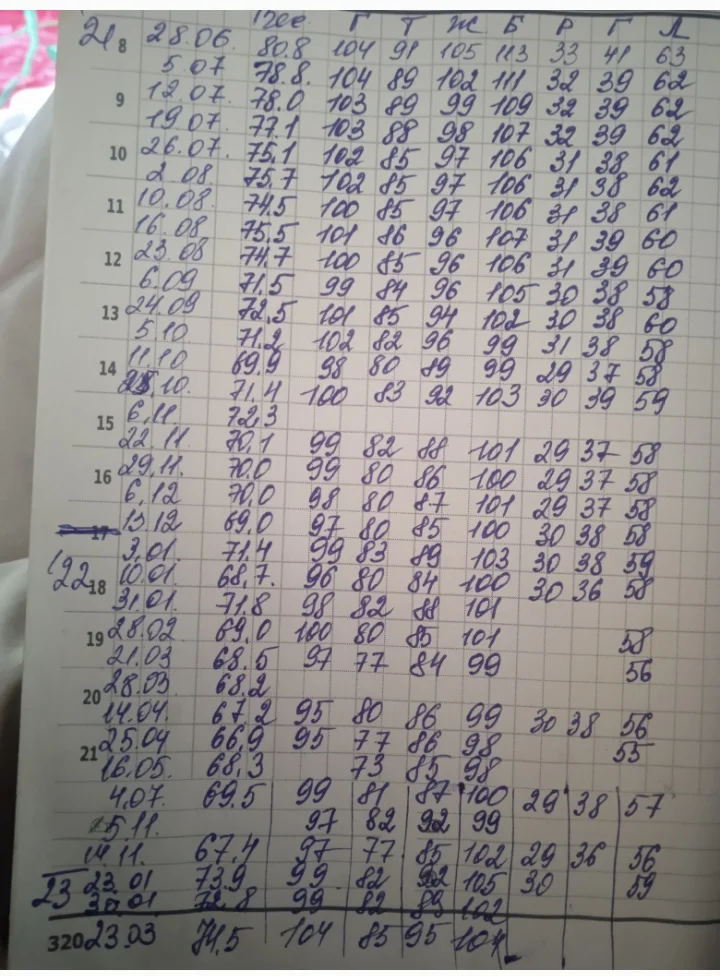 Вес. Г Т Ж Б Р Г Л
21 8 28.06. 80.8 104 91 105 113 33 41 63
5.07 78.8. 104 89 102 111 32 39 62
9 12.07. 78.0 103 89 99 109 32 39 62
19.07. 77.1 103 88 98 107 32 39 62
10 26.07. 75.1 102 85 97 106 31 38 61
2.08. 75.7 102 85 97 106 31 38 62
11 10.08. 74.5 100 85 97 106 31 38 61
16.08 75.5 101 86 96 107 31 39 60
12 23.08 74.7 100 85 96 106 31 39 60
6.09 71.5 99 84 96 105 30 38 58
13 24.09 72.5 101 85 94 102 30 38 60
5.10 71.2 102 82 96 99 31 38 58
14 11.10 69.9 98 80 89 99 29 37 58
.10. 71.4 100 83 92 103 30 39 59
15 6.11 72,3
22.11. 70,1 99 82 88 101 29 37 58
16 29.11. 70.0 99 80 86 100 29 37 58
6.12 70.0 98 80 87 101 29 37 58
17 13.12 69.0 97 80 85 100 30 38 58
3.01. 71.4 99 83 89 103 30 38 59
'22 18 10.01. 68,7. 96 80 84 100 30 36 58
31.01. 71.8 98 82 88 101
19 28.02 69.0 100 80 85 101 58
21.03 68.5 97 77 84 99 56
20 28.03 68.2
14.04. 67,2 95 80 86 99 30 38 56
21 25.04 66,9 95 77 86 98 55
16.05. 68,3 73 85 98
4.07. 69.5 99 81 87 100 29 38 57
5.11. 97 82 92 99
14.11. 67.4 97 77 85 102 29 36 56
23 23.01 73.9 99 82 92 105 30 59
30.01 72.8 99 82 89 102
320 23.03 74.5 104 85 95 104